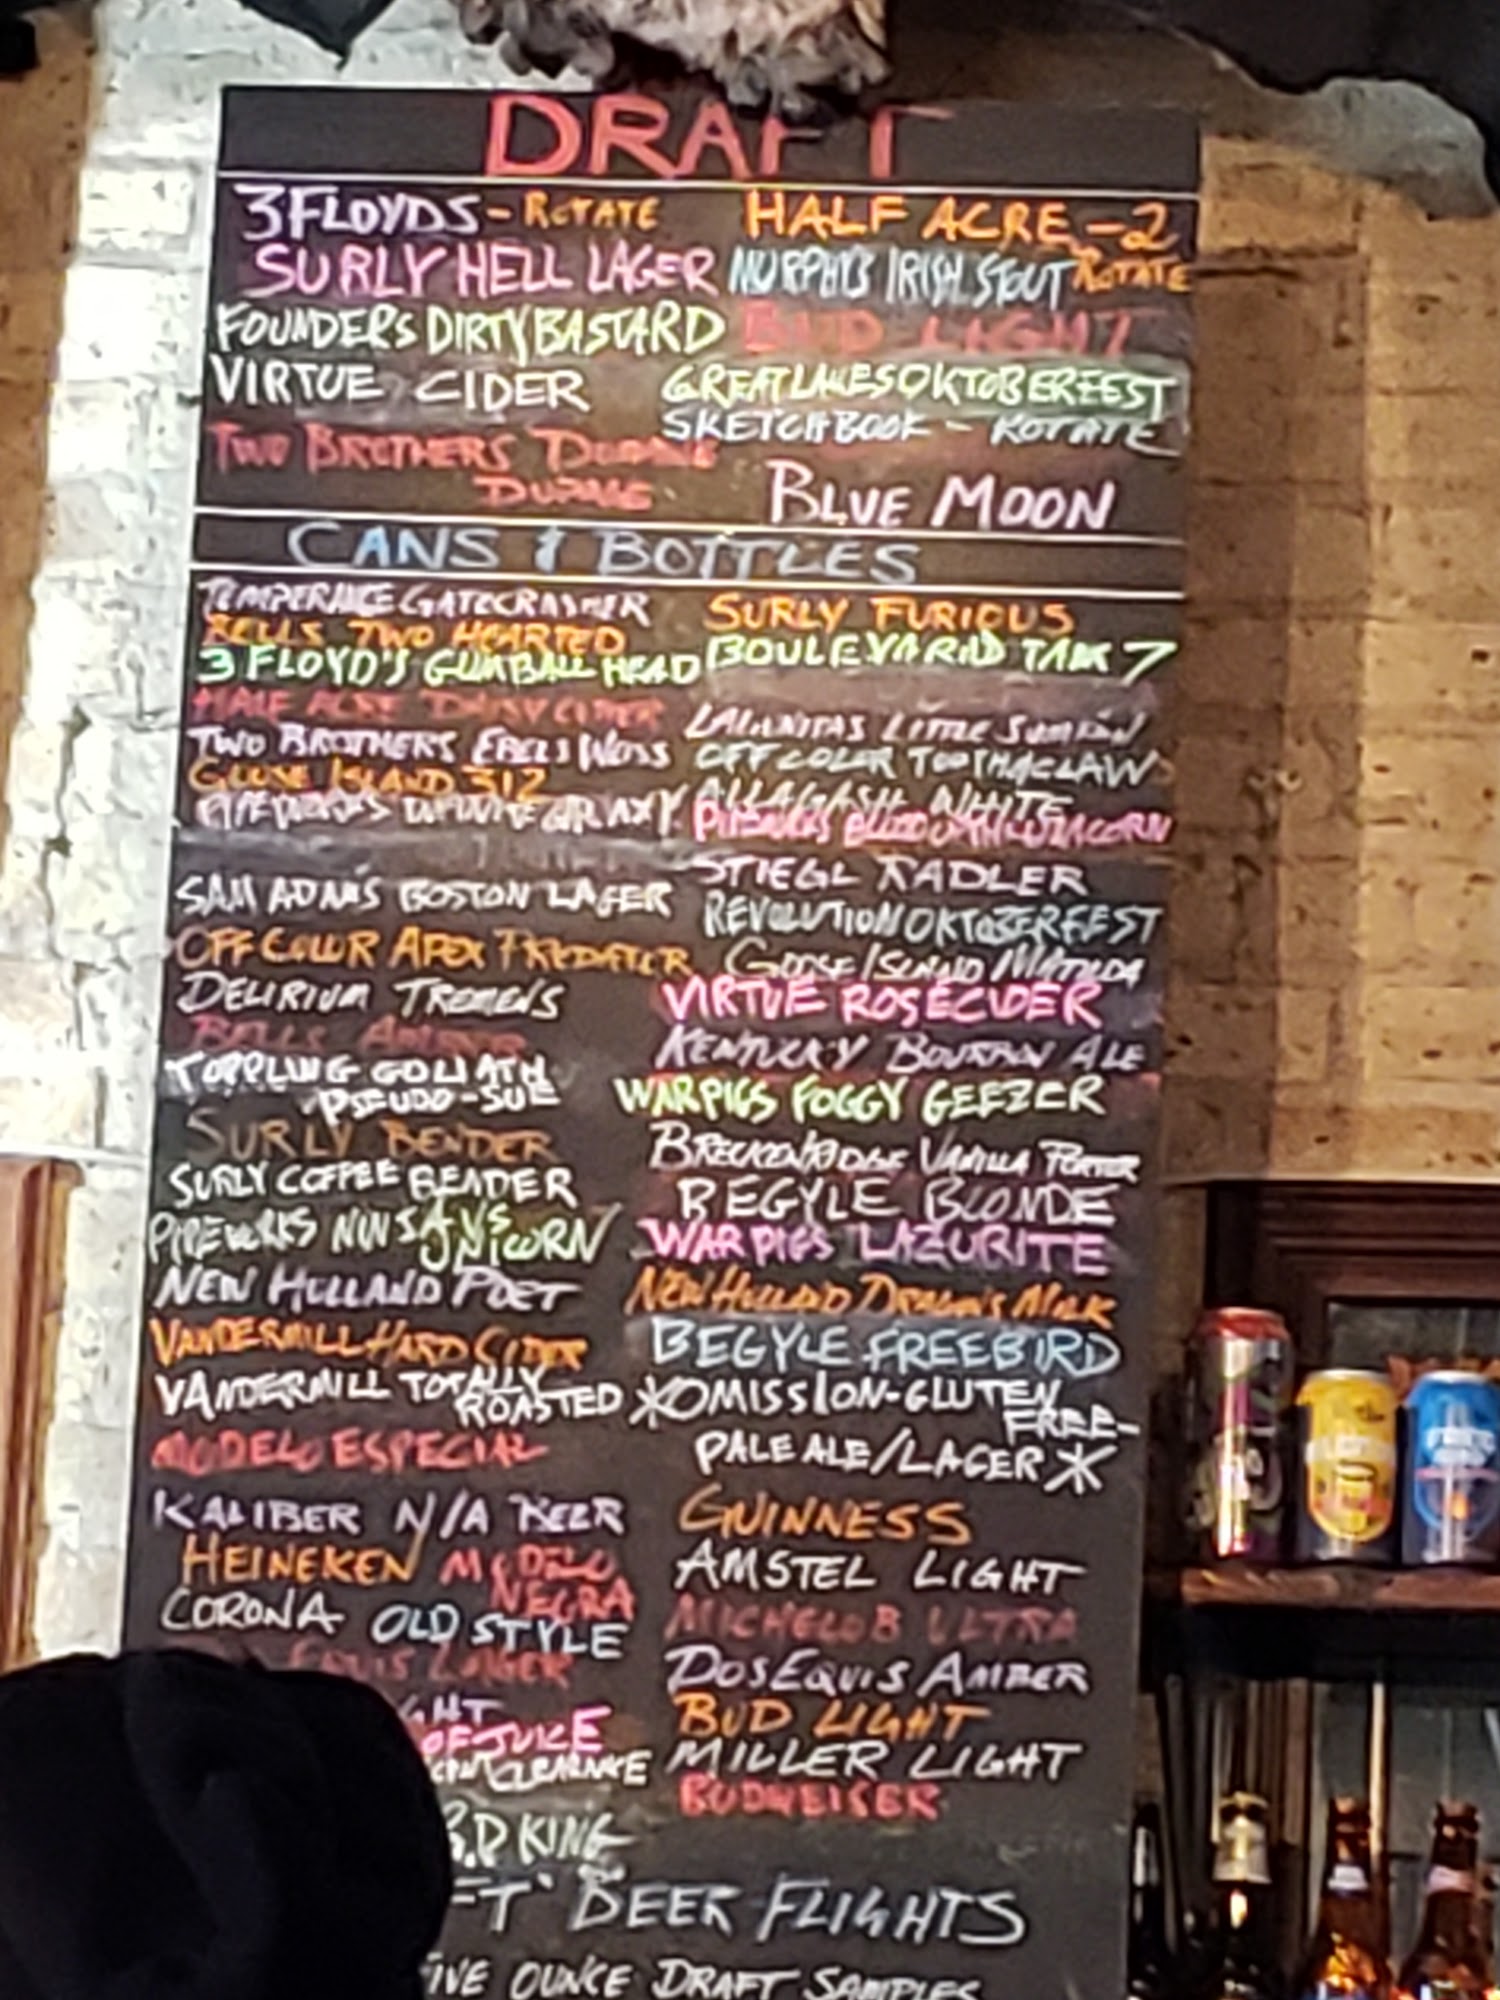 DRAFT
3 FLOYDS - ROTATE
SURLY HELL LAGER
FOUNDERS DIRTY BASTARD
VIRTUE CIDER
TWO BROTHERS
HALF ACRE - 2
MURPHY'S IRISH STOUT ROTATE
BUD LIGHT
GREAT LAKES OKTOBERFEST
SKETCHBOOK - ROTATE
BLUE MOON
CANS & BOTTLES
TEMPERANCE GATECRASHER
BELLS TWO HEARTED
3 FLOYD'S GUMBALL HEAD
HALF ACRE DAISY CUTTER
TWO BROTHERS EBELS WEISS
GOOSE ISLAND 312
PIPEWORKS INFINITE GALAXY
SAM ADAM'S BOSTON LAGER
OFF COLOR APEX PREDATOR
DELIRIUM TREMENS
BELLS AMBER
TOPPLING GOLIATH
PSEUDO-SUE
SURLY BENDER
SURLY COFFEE BENDER
PIPEWORKS NINJA VS
UNICORN
NEW HOLLAND POET
VANDERMILL HARD CIDER
VANDERMILL TOTALLY
ROASTED
MODELO ESPECIAL
KALIBER N/A BEER
HEINEKEN MODELO
NEGRA
CORONA OLD STYLE
EQUIS LAGER
GHT
OF JUICE
CLEARANCE
KING
SURLY FURIOUS
BOULEVARD TANK 7
LAGUNITAS LITTLE SUMPIN
OFF COLOR TOOTH & CLAW
ALLAGASH WHITE
PIPEWORKS BLOOD OF THE UNICORN
STIEGL RADLER
REVOLUTION OKTOBERFEST
GOOSE ISLAND MATILDA
VIRTUE ROSE CIDER
KENTUCKY BOURBON ALE
WARPIGS FOGGY GEEZER
BRECKENRIDGE VANILLA PORTER
BEGYLE BLONDE
WARPIGS LAZURITE
NEW HOLLAND DRAGONS MILK
BEGYLE FREEBIRD
*OMISSION-GLUTEN
FREE-
PALE ALE/LAGER*
GUINNESS
AMSTEL LIGHT
MICHELOB ULTRA
DOS EQUIS AMBER
BUD LIGHT
MILLER LIGHT
BUDWEISER
FT BEER FLIGHTS
IVE OUNCE DRAFT SAMPLES